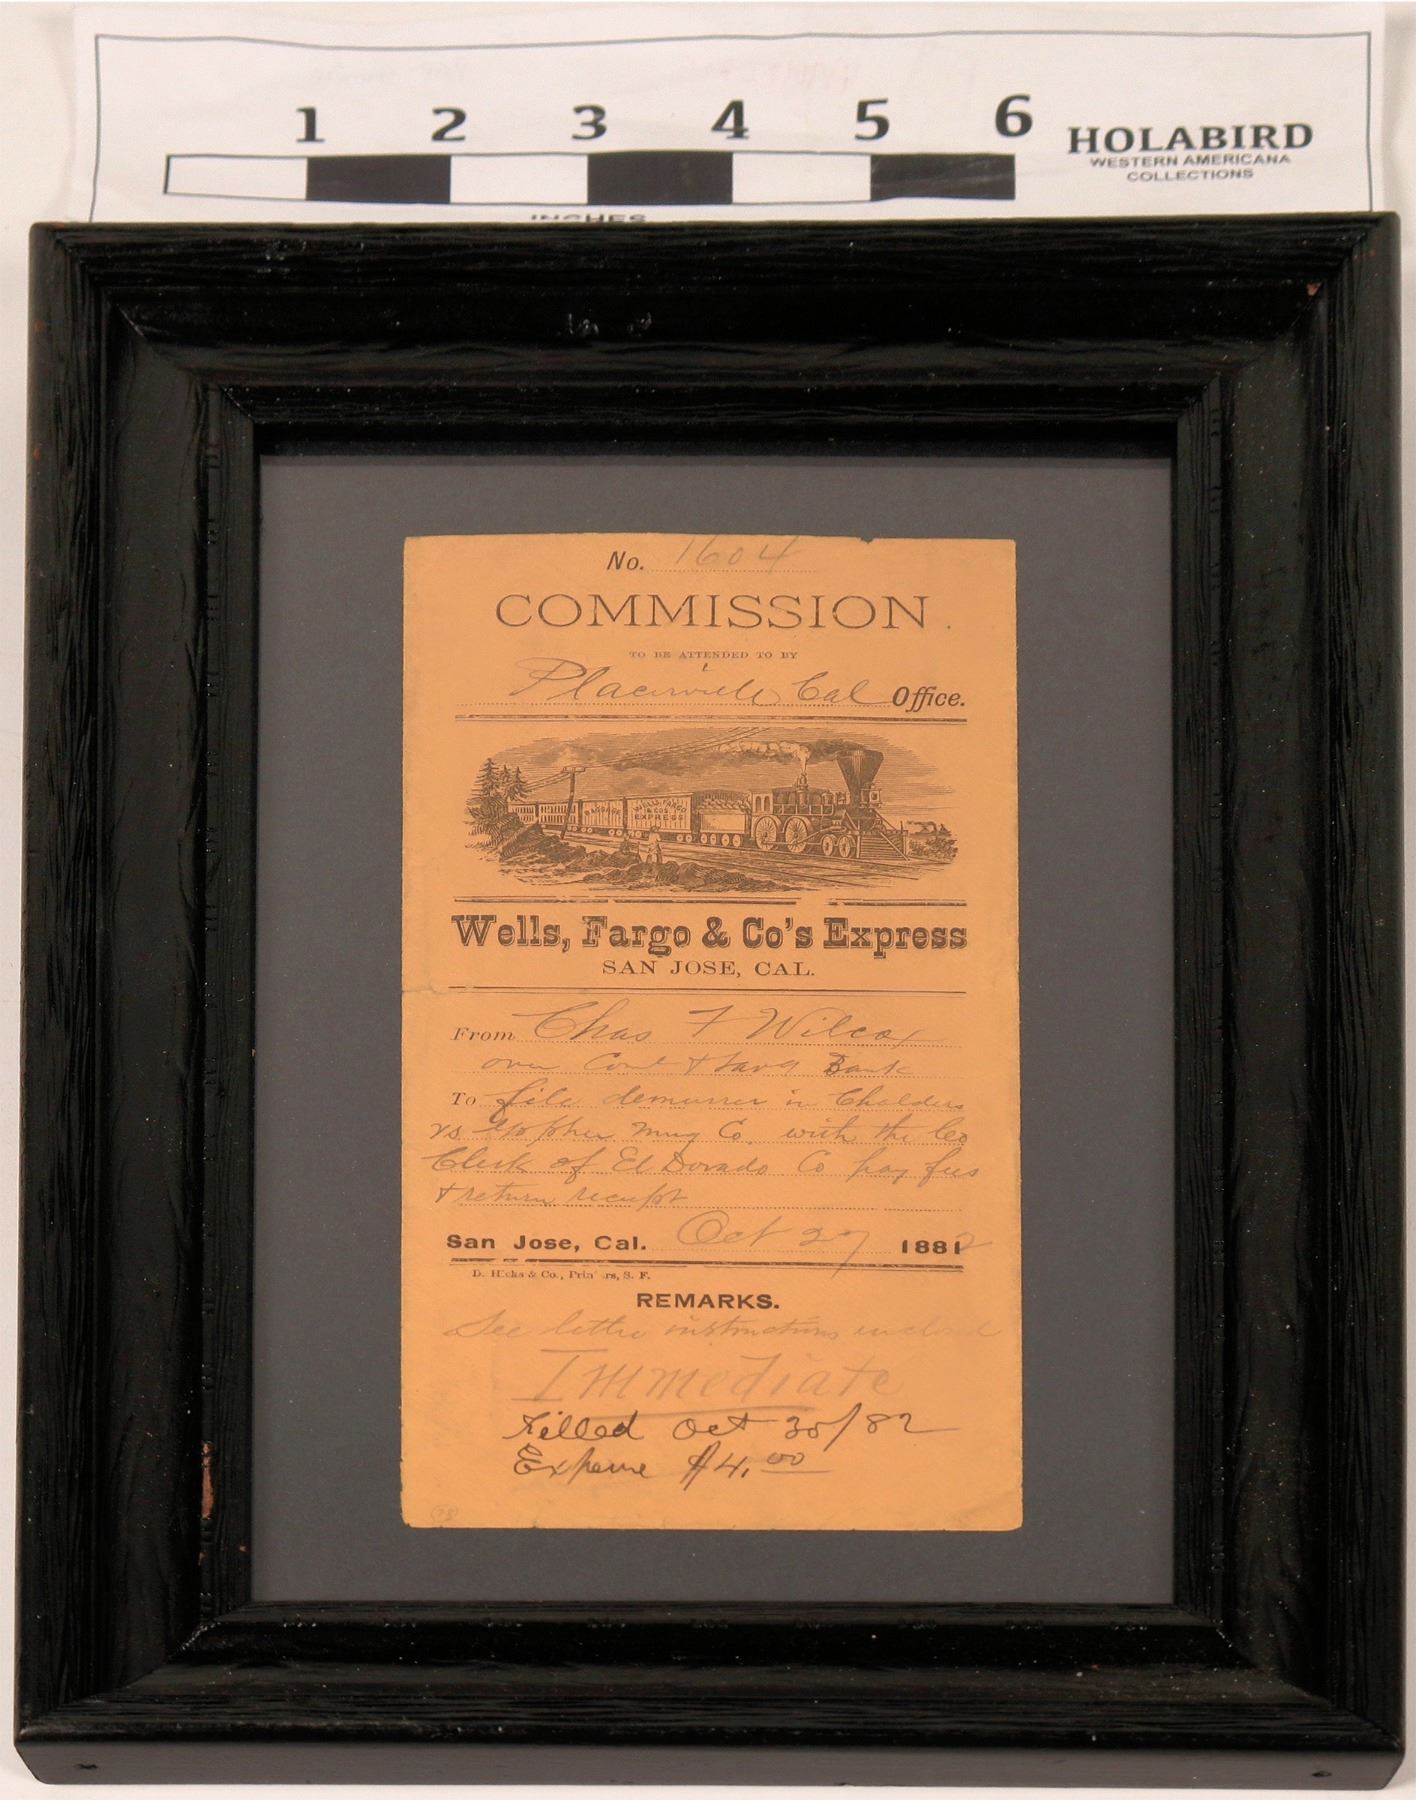 1 2 3 4 5 6
HOLABIRD
WESTERN AMERICANA
COLLECTIONS
INCHES
No. 1604
COMMISSION.
TO BE ATTENDED TO BY
Placerville Cal Office.
BAGGAGE
WELLS FARGO
& COS.
EXPRESS
Wells, Fargo & Co's Express
SAN JOSE, CAL.
From Chas F Wilcox
over Coml & Savg Bank
To file demurrer in Chalders
vs Gopher Mng Co. with the Co
Clerk of El Dorado Co pay fees
& return receipt
San Jose, Cal. Oct 27 1882
D. Hicks & Co., Printers, S. F.
REMARKS.
See letter instructions enclosed
Immediate
Filled Oct 30/82
Expense $4.00